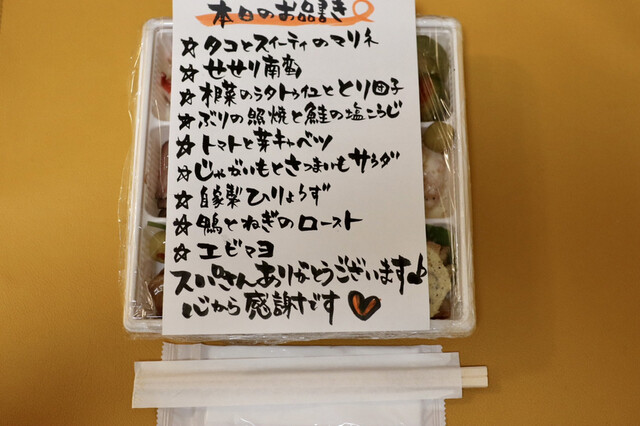 本日のお品書き
☆タコとスイーティのマリネ
☆せせり南蛮
☆根菜のラタトゥイユととり団子
☆ぶりの照焼と鮭の塩こうじ
☆トマトと芽キャベツ
☆じゃがいもとさつまいもサラダ
☆自家製ひりょうず
☆鴨とねぎのロースト
☆エビマヨ
スパさんありがとうございます♪
心から感謝です♥